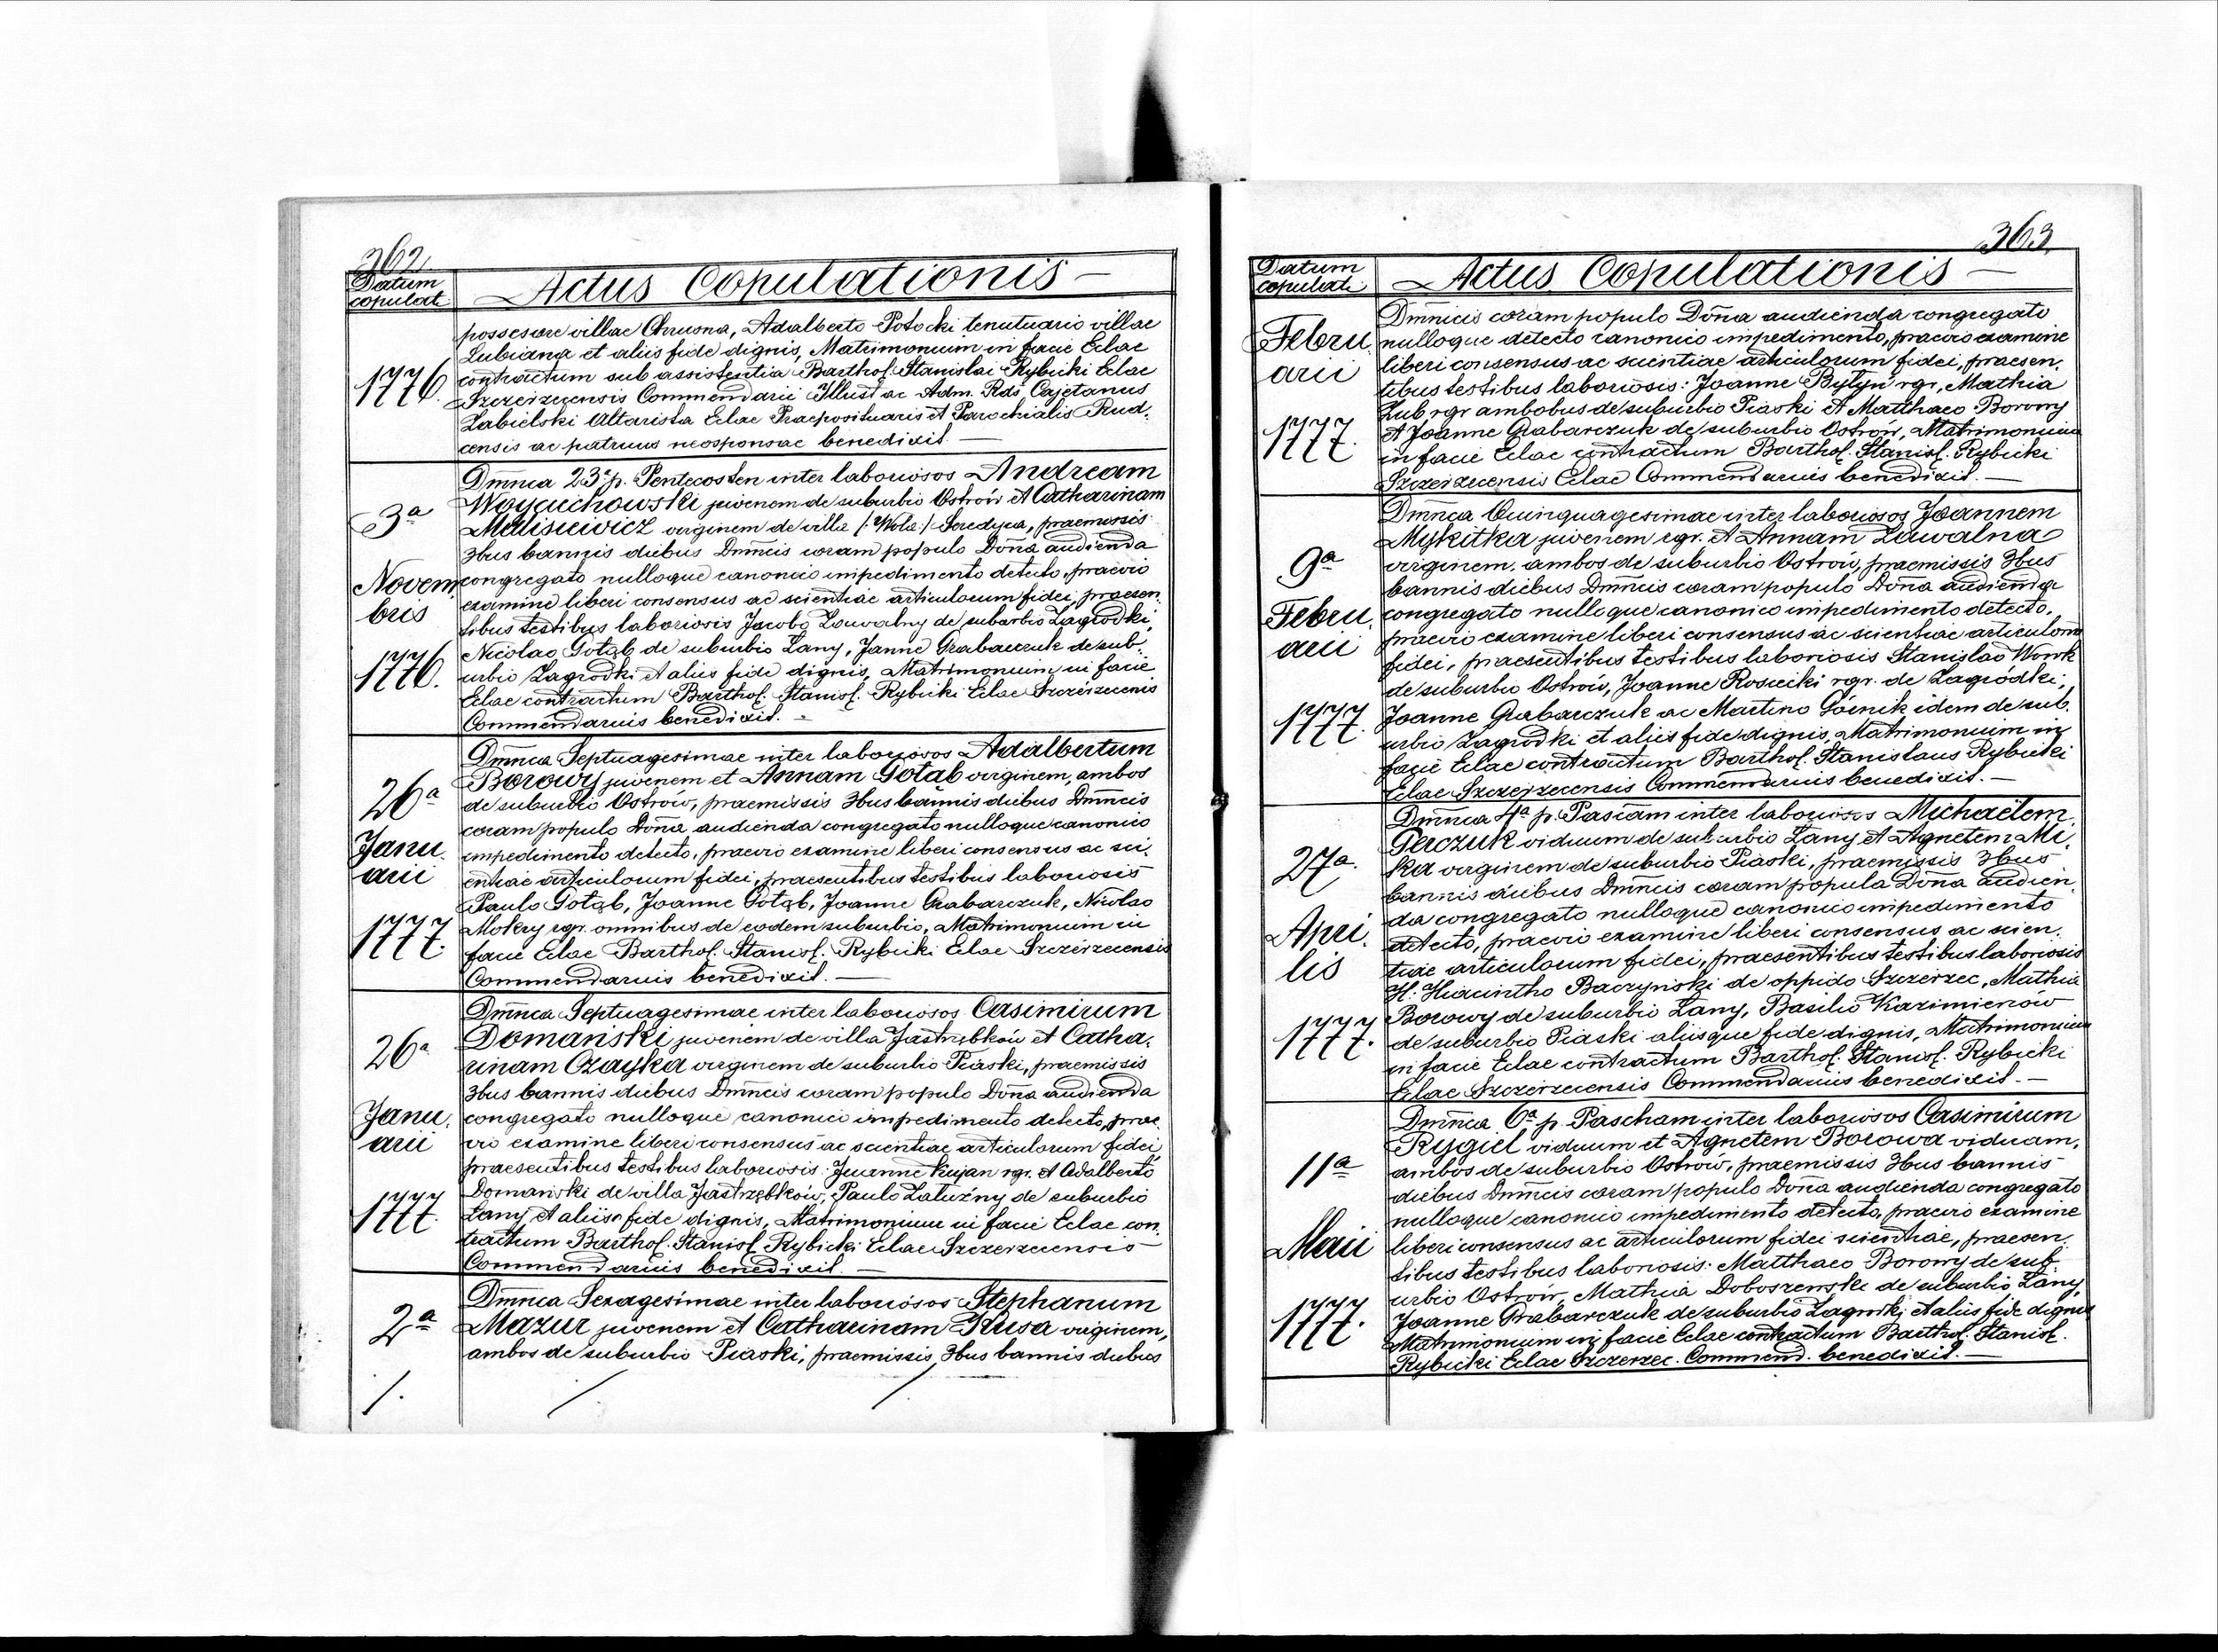 362
Datum
copulat.
Actus Copulationis —
1776.
possesore villae Chrusna, Adalberto Potocki tenutuario villae
Lubiana et aliis fide dignis, Matrimonium in facie Eclae
contractum sub assistentia Barthol. Stanislai Rybicki Eclae
Szczerzecensis Commendarii Illust ac Adm. Rds Cajetanus
Zabielski Altarista Eclae Praeposituaris et Parochialis Rud-
censis ac patruus neosponsae benedixit —
3ª
Novem
bris
1776.
Dmnca 23ª p. Pentecosten inter laboriosos Andream
Woyciuchowski juvenem de suburbio Ostrów et Catharinam
Malisiewicz virginem de villa /:Wola:/ Serdyca, praemissis
3bus bannis diebus Dmncis coram populo Dona audienda
congregato nulloque canonico impedimento detecto, praevio
examine liberi consensus ac scientiae articulorum fidei, praesen
tibus testibus laboriosis Jacobo Zawalny de suburbio Zagrodki,
Nicolao Gołąb de suburbio Lany, Janne Grabarczuk de sub-
urbio Zagrodki et aliis fide dignis, Matrimonium in facie
Eclae contractum Barthol. Stanisl. Rybicki Eclae Szczerzecensis
Commendarius benedixit. —
26ª
Janu.
arii
1777.
Dmnca Septuagesimae inter laboriosos Adalbertum
Borowy juvenem et Annam Gołąb virginem, ambos
de suburbio Ostrów, praemissis 3bus bannis diebus Dmncis
coram populo Dona audienda congregato nulloque canonico
impedimento detecto, praevio examine liberi consensus ac sci.
entiae articulorum fidei, praesentibus testibus laboriosis
Paulo Gołąb, Joanne Gołąb, Joanne Grabarczuk, Nicolao
Mokry rgr. omnibus de eodem suburbio, Matrimonium in
facie Eclae Barthol. Stanisl. Rybicki Eclae Szczerzecensis
Commendarius benedixit. —
26ª
Janu.
arii
1777.
Dmnca Septuagesimae inter laboriosos Casimirum
Domański juvenem de villa Jastrzębków et Catha.
rinam Czayka virginem de suburbio Piaski, praemissis
3bus bannis diebus Dmncis coram populo Dona audienda
congregato nulloque canonico impedimento detecto, prae
vio examine liberi consensus ac scientiae articulorum fidei
praesentibus testibus laboriosis: Joanne Kujan rgr. et Adalberto
Domański de villa Jastrzębków, Paulo Załuźny de suburbio
Lany, et aliis fide dignis, Matrimonium in facie Eclae con.
tractum Barthol. Stanisl. Rybicki Eclae Szczerzecensis
Commendarius benedixit. —
2ª
Dmnca Sexagesimae inter laboriosos Stephanum
Mazur juvenem et Catharinam Kusa virginem,
ambos de suburbio Piaski, praemissis 3bus bannis diebus
/. / /
363
Datum
copulati
Actus Copulationis —
Febru
arii
1777.
Dmnicis coram populo Dona audienda congregato
nulloque detecto canonico impedimento, praevio examine
liberi consensus ac scientiae articulorum fidei, praesen.
tibus testibus laboriosis: Joanne Bytyn rgr., Mathia
Zub rgr ambobus de suburbio Piaski et Matthaeo Borowy
et Joanne Grabarczuk de suburbio Ostrów, Matrimonium
in facie Eclae contractum Barthol. Stanisl. Rybicki
Szczerzecensis Eclae Commendarius benedixit. —
9ª
Febru.
arii
1777.
Dmnca Quinquagesimae inter laboriosos Joannem
Mykitka juvenem rgr. et Annam Zawalna
virginem, ambos de suburbio Ostrów, praemissis 3bus
bannis diebus Dmncis coram populo Dona audienda
congregato nulloque canonico impedimento detecto,
praevio examine liberi consensus ac scientiae articulorm
fidei, praesentibus testibus laboriosis Stanislao Wowk
de suburbio Ostrów, Joanne Rosiecki rgr. de Zagródki,
Joanne Grabarczuk ac Martino Górnik idem de sub.
urbio Zagrodki et aliis fide dignis, Matrimonium in
facie Eclae contractum Barthol. Stanislaus Rybicki
Eclae Szczerzecensis Commendarius benedixit. —
27ª
Apri.
lis
1777.
Dmnca 4ª p. Pascam inter laboriosos Michaëlem
Perczuk viduum de suburbio Lany et Agnetem Mi.
ka virginem de suburbio Piaski, praemissis 3bus
bannis diebus Dmncis coram popula Dona audien.
da congregato nulloque canonico impedimento
detecto, praevio examine liberi consensus ac scien.
tiae articulorum fidei, praesentibus testibus laboriosis
H. Hiacintho Baczyński de oppido Szczerzec, Mathia
Borowy de suburbio Lany, Basilio Kazimierów
de suburbio Piaski aliisque fide dignis, Matrimonium
in facie Eclae contractum Barthol. Stanisl. Rybicki
Eclae Szczerzecensis Commendarius benedixit. —
11ª
Maii
1777.
Dmnca 6ª p. Pascham inter laboriosos Casimirum
Rygiel viduum et Agnetem Borowa viduam,
ambos de suburbio Ostrów, praemissis 3bus bannis
diebus Dmncis coram populo Dona audienda congregato
nulloque canonico impedimento detecto, praevio examine
liberi consensus ac articulorum fidei scientiae, praesen.
tibus testibus laboriosis: Matthaeo Borowy de sub
urbio Ostrów, Mathia Doboszewski de suburbio Lany,
Joanne Grabarczuk de suburbio Zagrodki et aliis fide dignis
Matrimonium in facie Eclae contractum Barthol. Stanisl.
Rybicki Eclae Szczerzec. Commend. benedixit. —